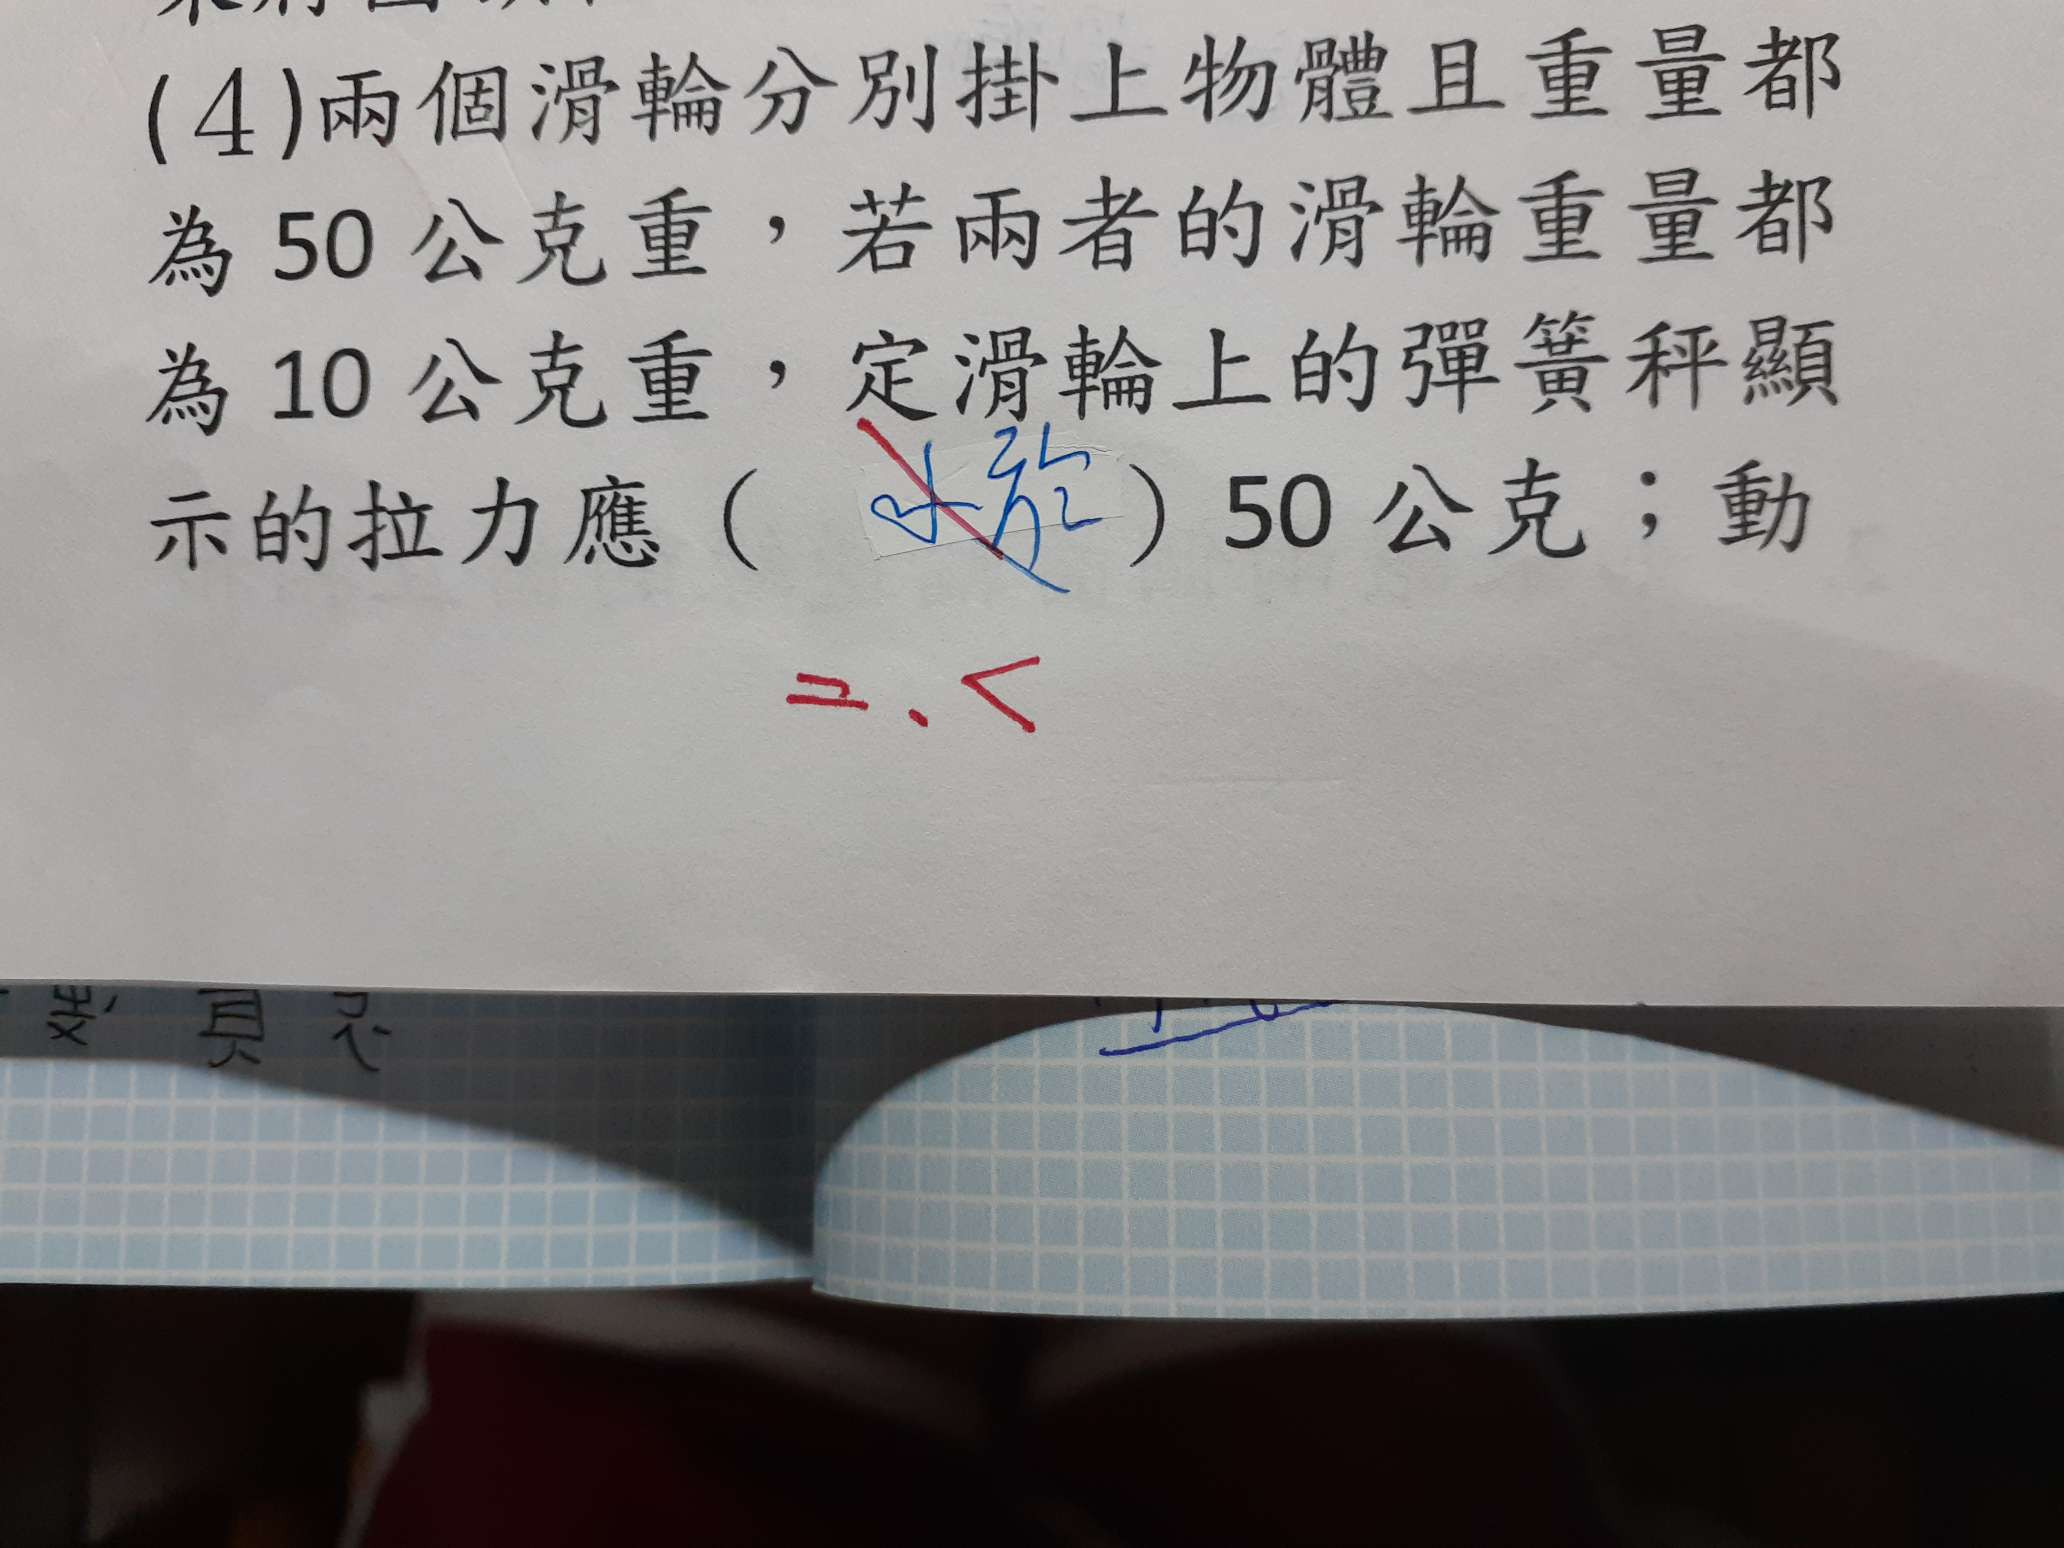 (4)兩個滑輪分別掛上物體且重量都
為 50 公克重，若兩者的滑輪重量都
為 10 公克重，定滑輪上的彈簧秤顯
示的拉力應（ 小於 ）50 公克；動
= . <